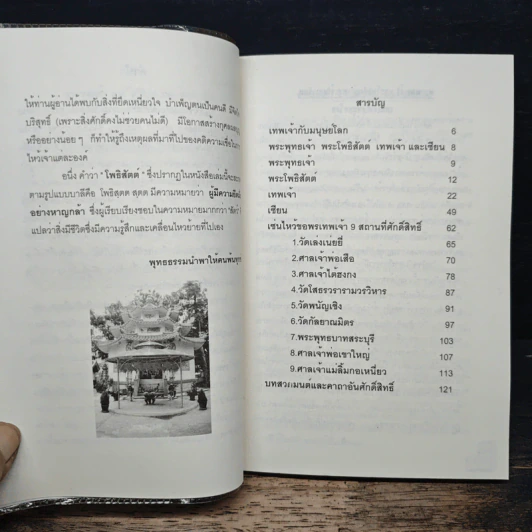 ให้ท่านผู้อ่านได้พบกับสิ่งที่ยึดเหนี่ยวใจ บำเพ็ญตนเป็นคนดี
บริสุทธิ์ (เพราะสิ่งศักดิ์คงไม่ช่วยคนไม่ดี) มีโอกาสสร้างกุศล
หรืออย่างน้อยๆ ก็ทำให้รู้ถึงเหตุผลที่มาที่ไปของคติความเชื่อ
ไหว้เจ้าแต่ละองค์
อนึ่ง คำว่า "โพธิสัตต์" ซึ่งปรากฏในหนังสือเล่มนี้จะ
ตามรูปแบบบาลีคือ โพธิสตฺต สตฺต มีความหมายว่า ผู้มีความ
อย่างหาญกล้า ซึ่งผู้เรียบเรียงชอบในความหมายมากกว่า
แปลว่าสิ่งมีชีวิตซึ่งมีความรู้สึกและเคลื่อนไหวย้ายที่ไปเอง
พุทธธรรมนำพาให้คนพ้นทุกข์
สารบัญ
เทพเจ้ากับมนุษยโลก 6
พระพุทธเจ้า พระโพธิสัตต์ เทพเจ้า และเซียน 8
พระพุทธเจ้า 9
พระโพธิสัตต์ 12
เทพเจ้า 22
เซียน 49
เซ่นไหว้ขอพรเทพเจ้า 9 สถานที่ศักดิ์สิทธิ์ 62
1.วัดเล่งเน่ยยี่ 65
2.ศาลเจ้าพ่อเสือ 70
3.ศาลเจ้าไต้ฮงกง 78
4.วัดโสธรวรารามวรวิหาร 87
5.วัดพนัญเชิง 91
6.วัดกัลยาณมิตร 97
7.พระพุทธบาทสระบุรี 103
8.ศาลเจ้าพ่อเขาใหญ่ 107
9.ศาลเจ้าแม่ลิ้มกอเหนี่ยว 113
บทสวดมนต์และคาถาอันศักดิ์สิทธิ์ 121